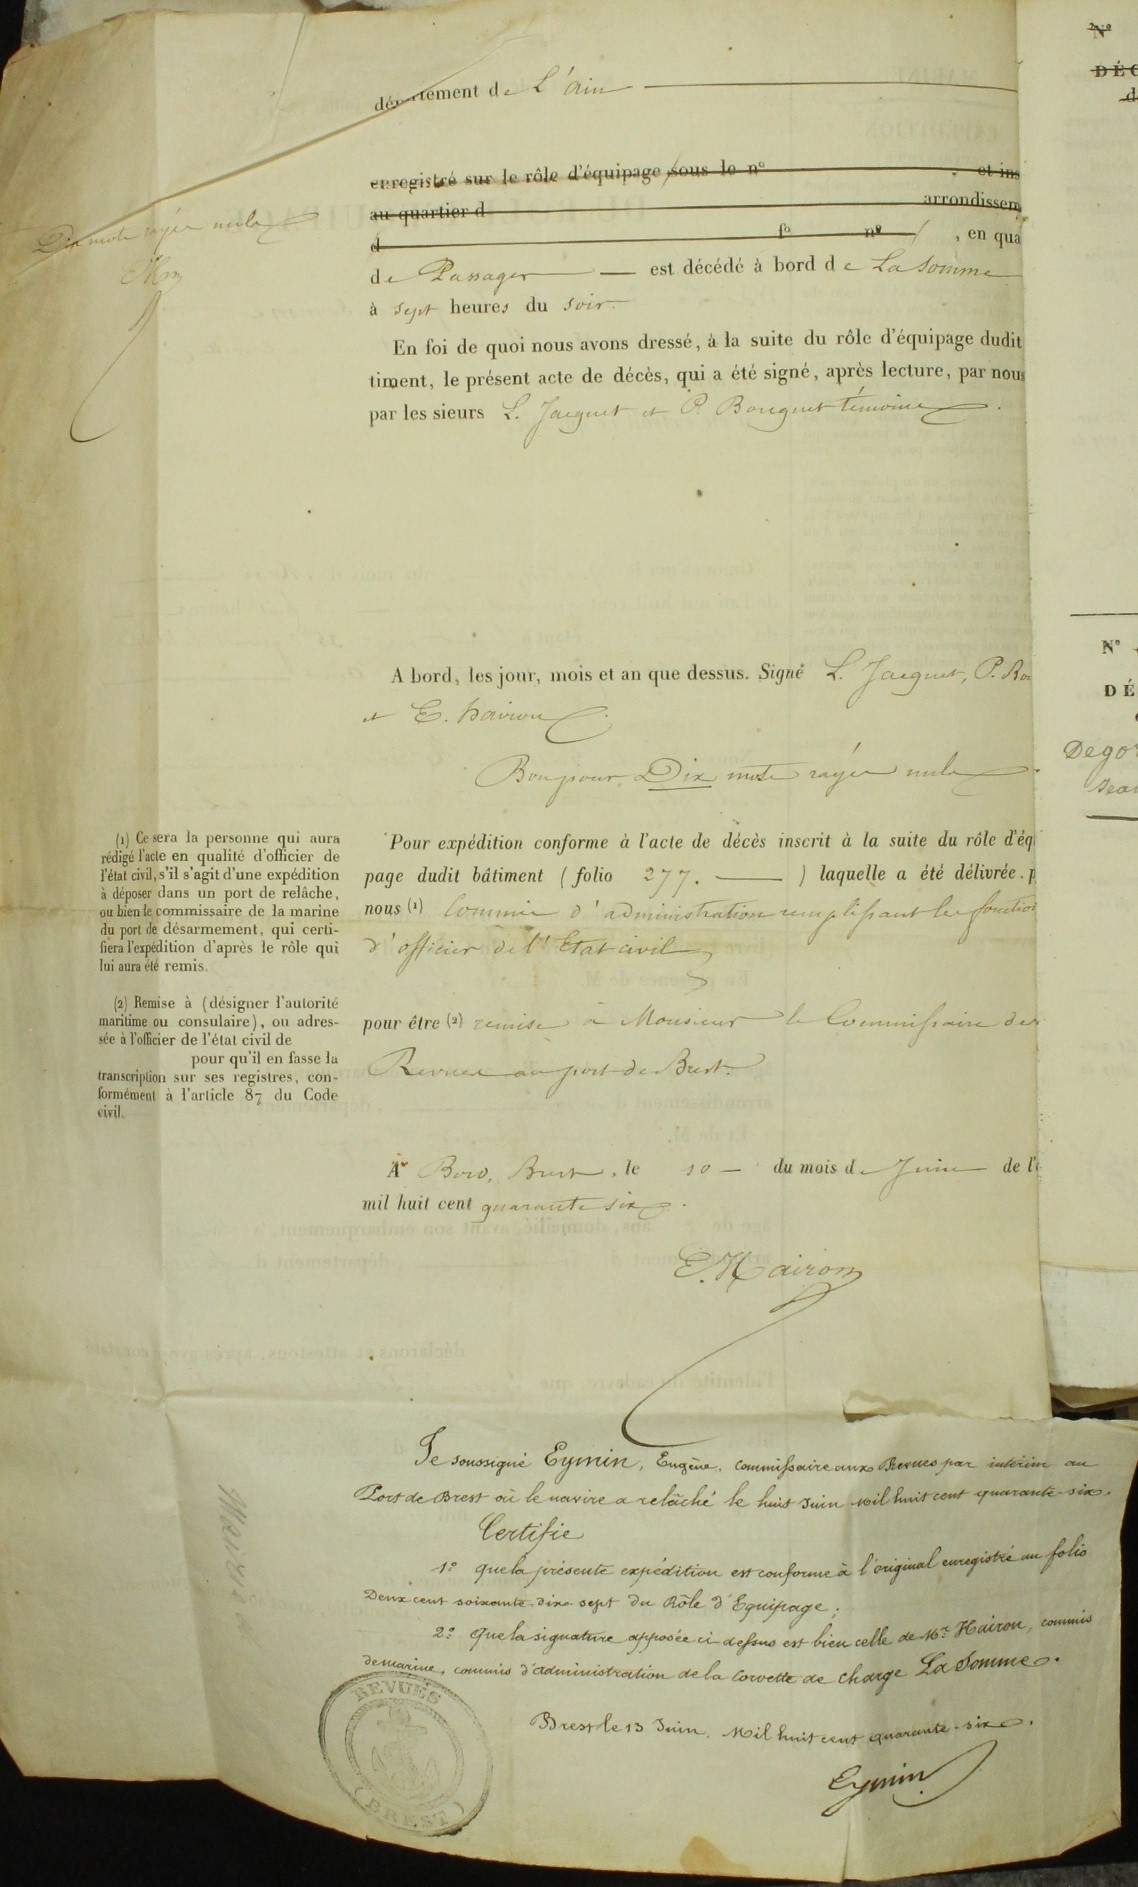 département de L'ain
enregistré sur le rôle d'équipage sous le n° et ins
au quartier d arrondissem
d f° n° , en qua
de Passager est décédé à bord de La Somme
à sept heures du soir
Dix mots rayés nuls
En foi de quoi nous avons dressé, à la suite du rôle d'équipage dudit
timent, le présent acte de décès, qui a été signé, après lecture, par nous
par les sieurs L. Jacquet et P. Bouquet témoins.
A bord, les jour, mois et an que dessus. Signé L. Jacquet, P. Bou
et E. hairon
Bon pour Dix mots rayés nuls
Pour expédition conforme à l'acte de décès inscrit à la suite du rôle d'équi
page dudit bâtiment ( folio 277. ) laquelle a été délivrée p
nous (1) Commis d'administration remplissant les fonction
d'officier de l'Etat civil
pour être (2) remise à Monsieur le Commissaire des
Revues au port de Brest.
A Bord, Brest, le 10 du mois de Juin de l'a
mil huit cent quarante six.
E. Hairon
(1) Ce sera la personne qui aura
rédigé l'acte en qualité d'officier de
l'état civil, s'il s'agit d'une expédition
à déposer dans un port de relâche,
ou bien le commissaire de la marine
du port de désarmement, qui certi-
fiera l'expédition d'après le rôle qui
lui aura été remis.
(2) Remise à (désigner l'autorité
maritime ou consulaire), ou adres-
sée à l'officier de l'état civil de
pour qu'il en fasse la
transcription sur ses registres, con-
formément à l'article 87 du Code
civil.
Je soussigné Eymin, Eugène, Commissaire aux Revues par intérim au
Port de Brest où le navire a relâché le huit Juin Mil huit cent quarante-six.
Certifie
1° que la présente expédition est conforme à l'original enregistré au folio
Deux cent soixante-dix-sept du Rôle d'Equipage ;
2° Que la signature apposée ci dessus est bien celle de Mr Hairon, commis
de marine, commis d'administration de la Corvette de charge La Somme.
Brest le 13 Juin, Mil huit cent quarante-six.
Eymin
REVUES
(BREST)
N°
DÉC
d
N°
DÉ
Degor
Jean